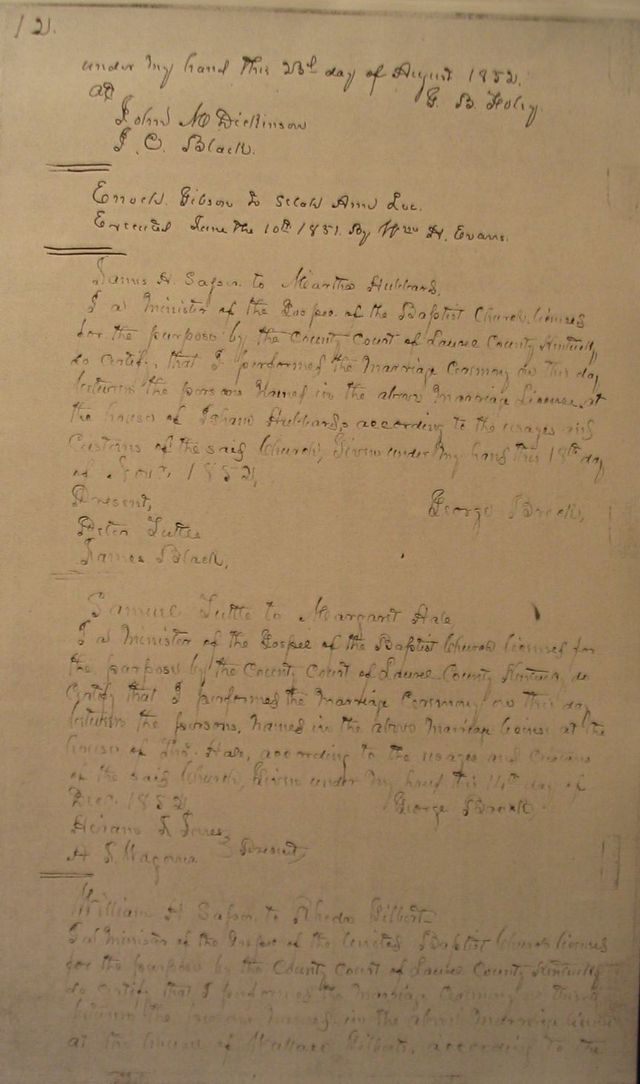 12.
under my hand this 23d day of August 1852.
G. B. Foley.
John M Dickinson
J. C. Black.
Enoch Gibson to Ann
Executed June the 10th 1851. By Wm H. Evans.
James H. Sasser to Martha Hubbard,
I a Minister of the Gospel of the Baptist Church licensed
for the purpose by the County Court of Laurel County Kentucky
do certify that I performed the Marriage Ceremony on this day
between the persons Named in the above Marriage License at
the house of Hubbards according to the usages and
Customs of the said Church, Given under My hand this 18th day
of 1852,
Present,
George Brock,
Peter Tuttle
James Black,
Samuel Tuttle to Margaret Hale
I a Minister of the Gospel of the Baptist Church licensed for
the purpose by the County Court of Laurel County Kentucky do
Certify that I performed the Marriage Ceremony on this day
between the persons, Named in the above Marriage license at the
house of Hale, according to the usages and
of the said Church, Given under My hand this 14th day of
Dec. 1852,
George Brock
Hiram
Present,
William H Sasser to Rhoda Gilbert
I a Minister of the Gospel of the United Baptist Church licensed
for the purpose by the County Court of Laurel County Kentucky
do certify that I performed the Marriage Ceremony on
between the persons Named in the above Marriage license
at the house of Gilberts, according to the